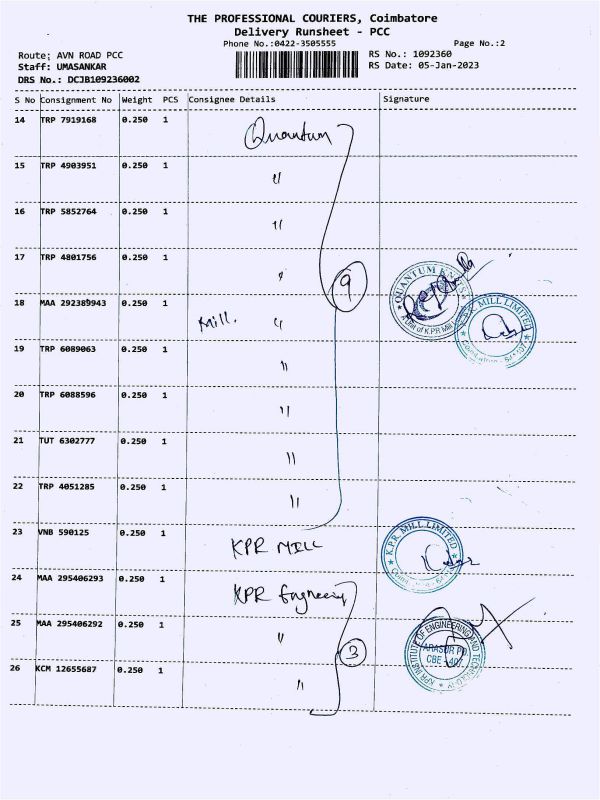 THE PROFESSIONAL COURIERS, Coimbatore
Delivery Runsheet - PCC
Phone No.:0422-3505555
Page No.:2
Route: AVN ROAD PCC
RS No.: 1092360
Staff: UMASANKAR
RS Date: 05-Jan-2023
DRS No.: DCJB109236002
S No Consignment No Weight PCS Consignee Details Signature
14 TRP 7919168 0.250 1 Quantum
15 TRP 4903951 0.250 1 〃
16 TRP 5852764 0.250 1 〃
17 TRP 4801756 0.250 1 〃
9
QUANTUM KNITS
A Unit of K.P.R Mill
18 MAA 292389943 0.250 1 Mill. 〃
K.P.R. MILL LIMITED
Coimbatore - 641407
19 TRP 6089063 0.250 1 〃
20 TRP 6088596 0.250 1 〃
21 TUT 6302777 0.250 1 〃
22 TRP 4051285 0.250 1 〃
23 VNB 590125 0.250 1 KPR MILL
K.P.R. MILL LIMITED
24 MAA 295406293 0.250 1 KPR Engineering
25 MAA 295406292 0.250 1 〃
3
KPR INSTITUTE OF ENGINEERING AND TECHNOLOGY
ARASUR PO
CBE - 407
26 KCM 12655687 0.250 1 〃